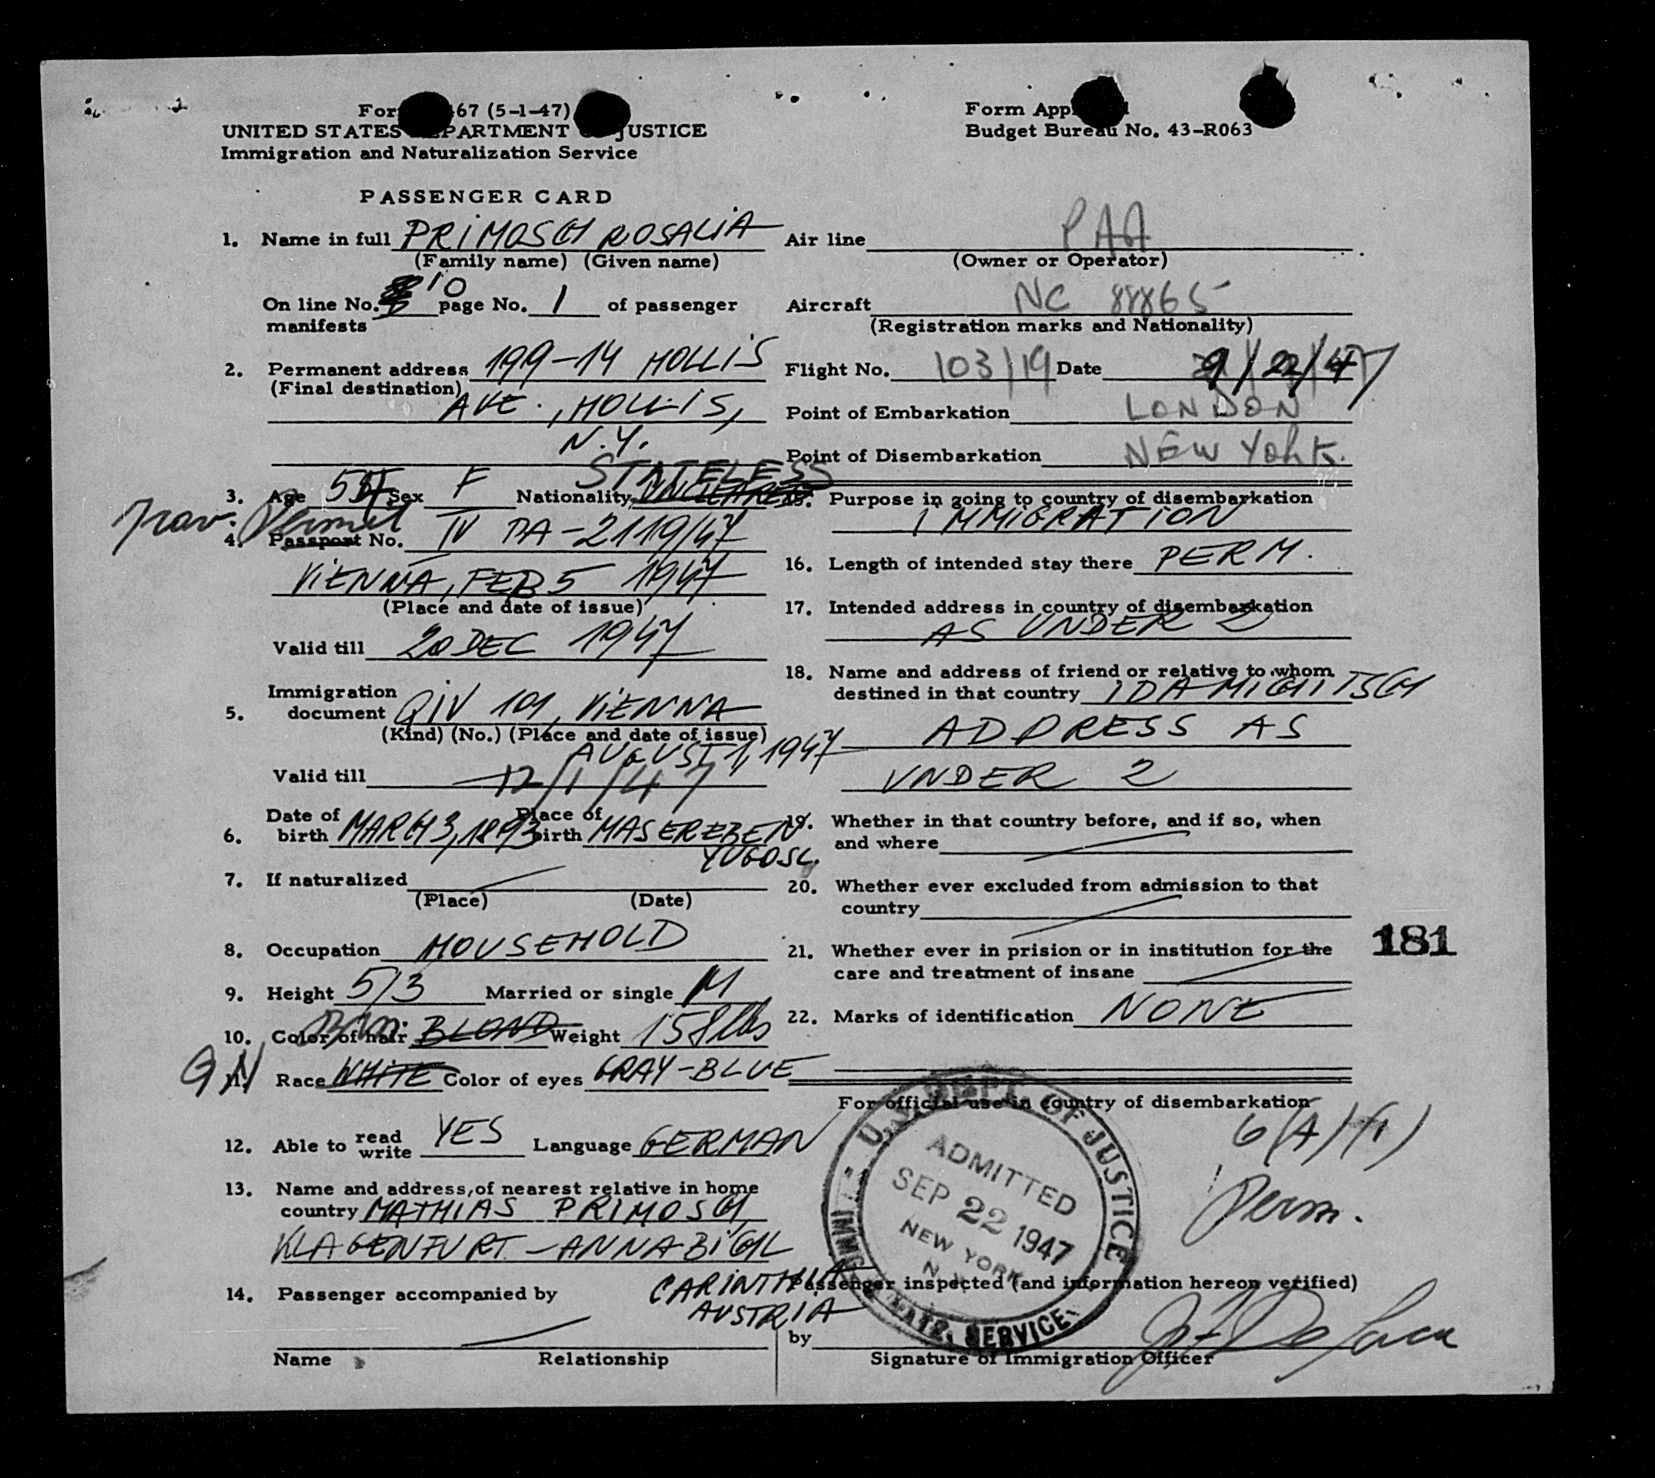 UNITED STATES DEPARTMENT OF JUSTICE
Immigration and Naturalization Service
PASSENGER CARD
1. Name in full PRIMOSCH ROSALIA
(Family name) (Given name)
On line No. 10 page No. 1 of passenger
manifests
2. Permanent address 199-14 HOLLIS
(Final destination)
AVE., HOLLIS,
N.Y.
STATELESS
3. Age 54 Sex F Nationality
Trav. Permit
4. Passport No. IV DA-2119/47
VIENNA, FEB 5 1947
(Place and date of issue)
Valid till 20 DEC 1947
Immigration
5. document QIV 101, VIENNA
(Kind) (No.) (Place and date of issue)
AUGUST 1, 1947
Valid till 12/1/47
Date of Place of
6. birth MARCH 3, 1893 birth MASEREBEN
YUGOSL.
7. If naturalized
(Place) (Date)
8. Occupation HOUSEHOLD
9. Height 5/3 Married or single M
10. Color of hair BLOND Weight 158 lbs
11. Race WHITE Color of eyes GRAY-BLUE
12. Able to read write YES Language GERMAN
13. Name and address, of nearest relative in home
country MATHIAS PRIMOSCH,
KLAGENFURT - ANNABICHL
CARINTHIA
AUSTRIA
14. Passenger accompanied by
Name Relationship
Form App
Budget Bureau No. 43-R063
Air line PAA
(Owner or Operator)
Aircraft NC 88865
(Registration marks and Nationality)
Flight No. 103/19 Date 9/22/47
Point of Embarkation LONDON
Point of Disembarkation NEW YORK.
15. Purpose in going to country of disembarkation
IMMIGRATION
16. Length of intended stay there PERM.
17. Intended address in country of disembarkation
AS UNDER 2
18. Name and address of friend or relative to whom
destined in that country IDA MICHITSCH
ADDRESS AS
UNDER 2
19. Whether in that country before, and if so, when
and where
20. Whether ever excluded from admission to that
country
21. Whether ever in prision or in institution for the
care and treatment of insane
181
22. Marks of identification NONE
For official use in country of disembarkation
6(A)(1)
Perm.
U.S. DEPT. OF JUSTICE
ADMITTED
SEP 22 1947
NEW YORK
N.Y.
IMMIG. & NATZ. SERVICE
Passenger inspected (and information hereon verified)
by
Signature of Immigration Officer